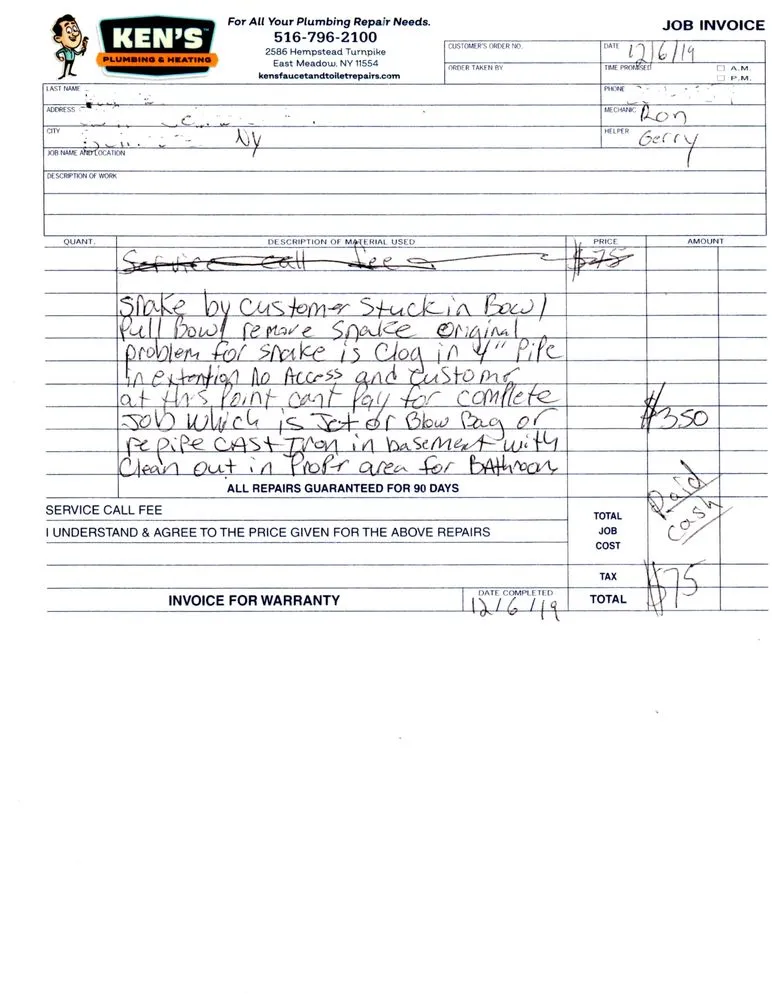 KEN'S
PLUMBING & HEATING
For All Your Plumbing Repair Needs.
516-796-2100
2586 Hempstead Turnpike
East Meadow, NY 11554
kensfaucetandtoiletrepairs.com
JOB INVOICE
CUSTOMER'S ORDER NO.
DATE 12/6/19
ORDER TAKEN BY
TIME PROMISED
A.M.
P.M.
LAST NAME
PHONE
ADDRESS
MECHANIC Ron
CITY NY
HELPER Gerry
JOB NAME AND LOCATION
DESCRIPTION OF WORK
QUANT. DESCRIPTION OF MATERIAL USED PRICE AMOUNT
Service Call fee $75
Snake by customer stuck in Bowl
Pull Bowl remove Snake Original
problem for snake is Clog in 4" Pipe
in extention No Access and Customer
at this Point cant Pay for complete
JOB Which is Jet or Blow Bag or $350
repipe CAST Iron in basement with
Clean out in Propr area for BAthroom
ALL REPAIRS GUARANTEED FOR 90 DAYS
SERVICE CALL FEE
I UNDERSTAND & AGREE TO THE PRICE GIVEN FOR THE ABOVE REPAIRS
TOTAL
JOB
COST
Paid
Cash
TAX
INVOICE FOR WARRANTY
DATE COMPLETED
12/6/19
TOTAL $75